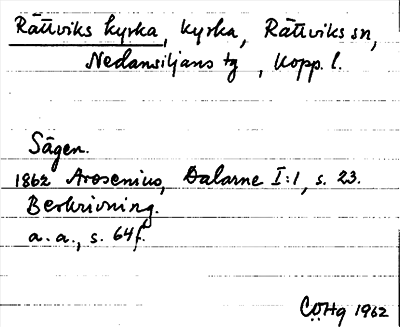 Rättviks kyrka, kyrka, Rättviks sn,
Nedansiljans tg, Kopp. l.
Sägen.
1862 Arosenius, Dalarne I:1, s. 23.
Beskrivning.
a. a., s. 64f.
1962